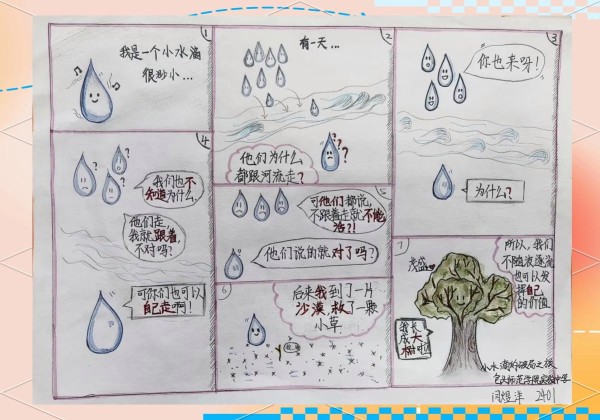 1
我是一个小水滴
很渺小...
2
有一天...
他们为什么
都跟河流走?
3
你也来呀!
为什么?
4
? ? ?
我们也不
知道为什么,
他们走,
我就跟着,
不对吗?
可你们也可以
自己走啊!
5
可他们都说,
不跟着走就不饱
他们说的就对了吗?
6
后来我到了一片
沙漠救了一颗
小草
7
茂盛
所以,我们
不随波逐流
也可以发
挥自己
的价值
我长
成大
树啦
小水滴的
闫煜洋 2401